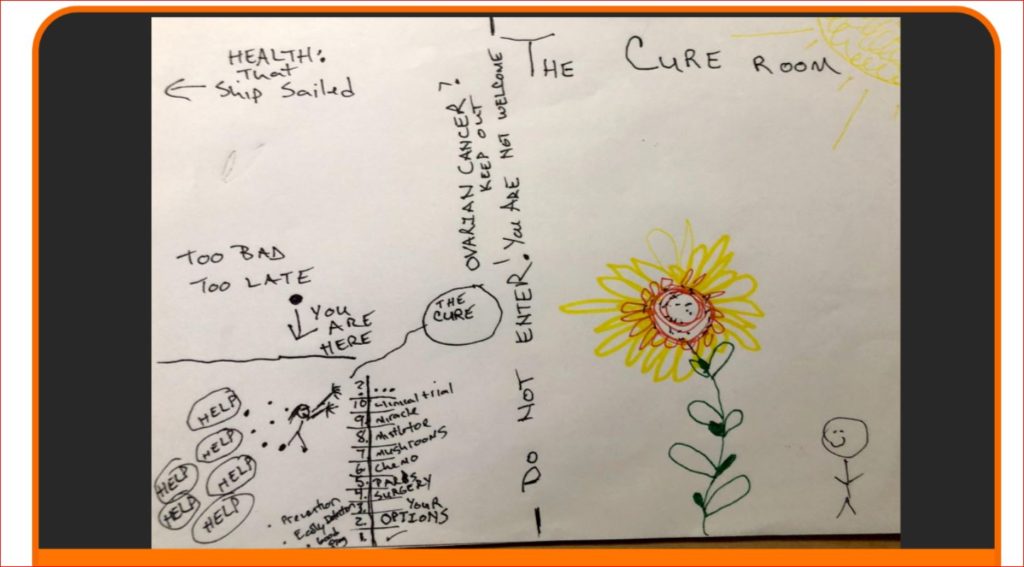 HEALTH:
That
Ship Sailed
TOO BAD
TOO LATE
YOU
ARE
HERE
THE
CURE
HELP
HELP
HELP
HELP
HELP
HELP
? ...
10. Clinical trial
9. Miracle
8. mistletoe
7. MUSHROOMS
6. CHEMO
5. PARPS
4. SURGERY
3. YOUR
2. OPTIONS
1.
• Prevention
• Early Detection
• Good
OVARIAN CANCER?
KEEP OUT
DO NOT ENTER! You ARE NOT WELCOME
THE CURE ROOM